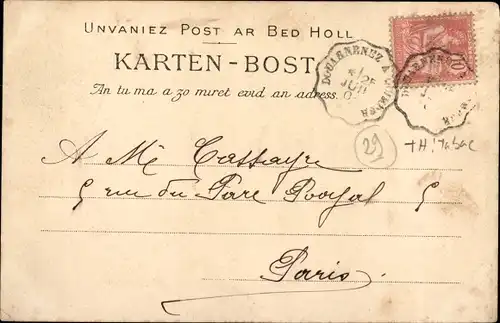 Unvaniez Post ar Bed Holl
KARTEN-BOST
An tu ma a zo miret evid an adress.
DOUARNENEZ A
JUIL
DOUARNENEZ
10
29
+ H! Tabac
A Mr Cassayre
5 rue du Parc Royal 5
Paris